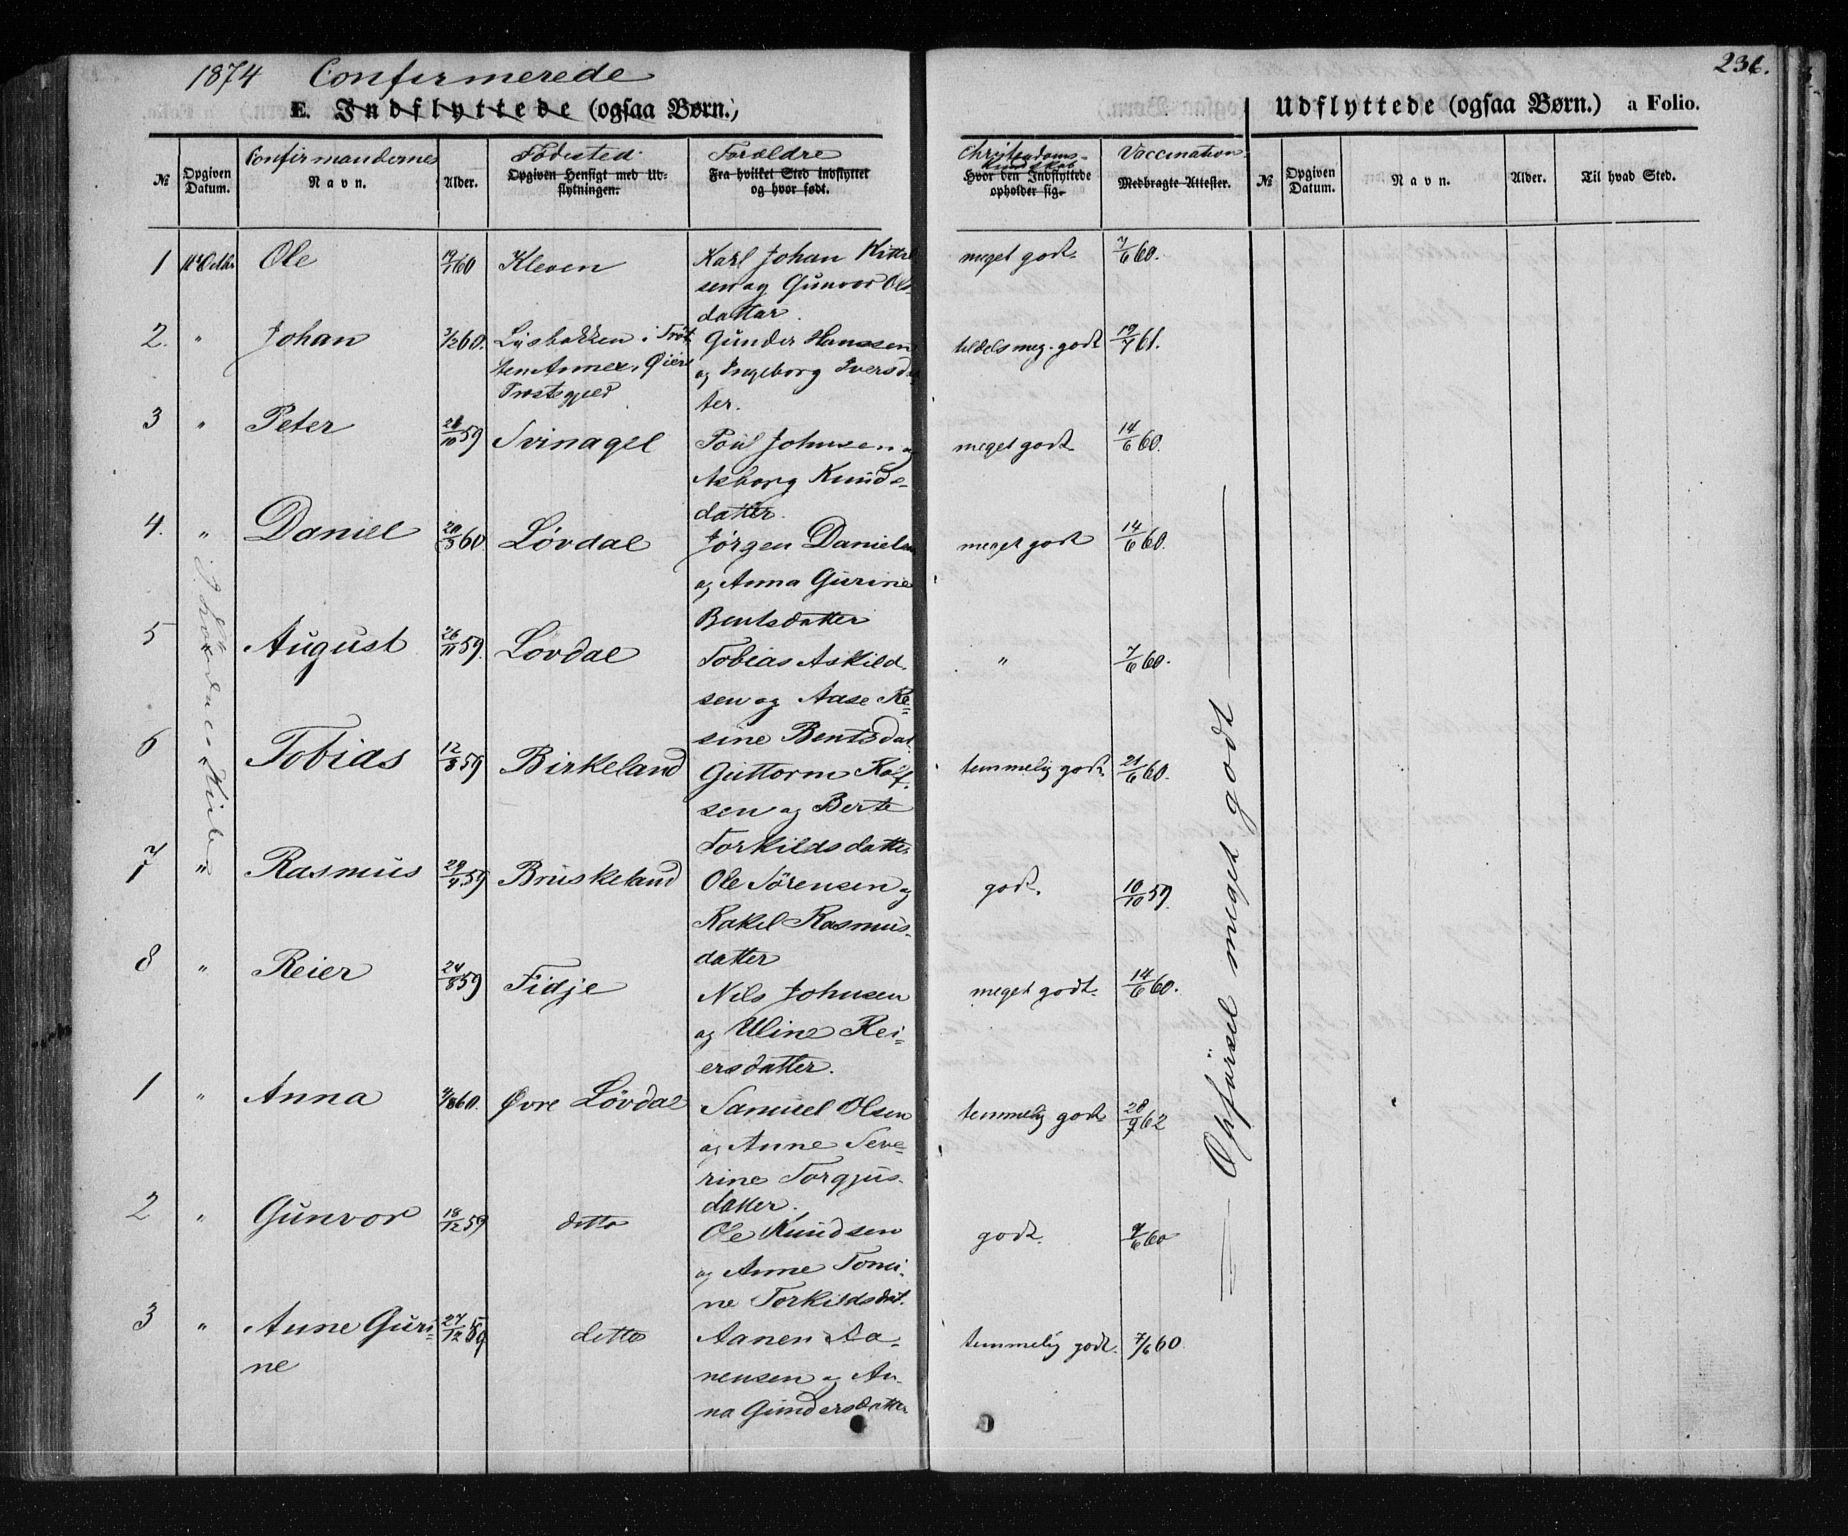 1874 Confirmerede
236.
E. Indflyttede (ogsaa Børn.)
Udflyttede (ogsaa Børn.) a Folio.
№ Opgiven Datum. Confirmandernes Navn. Alder. Fødested Opgiven Hensigt med Udflytningen. Forældre Fra hvilket Sted indflyttet og hvor født. Christendomskundskab Hvor den Indflyttede opholder sig. Vaccination. Medbragte Attester. № Opgiven Datum. Navn. Alder. Til hvad Sted.
1 Ole 60 Kleven Karl Johan Kittel meget godt. 7/6 60.
sen og Gunvor Ols
datter.
2. " Johan 60. Lysbakken i Trøt Gunder Hanssen tildels meg. godt 19/7 61.
ten Annex, Øiers og Ingeborg Iversdat
Præstegjeld ter.
3 " Peter 59 Svinagel Poul Johnsen og meget godt. 14/6 60.
Asborg Knuds-
datter.
4. " Daniel 60 Løvdal Jørgen Danielsen meget godt 14/6 60.
og Anna Gurine
Bentsdatter
5 August 26/11 59. Løvdal Tobias Askild " 7/6 60.
sen og Aase Re-
sine Bentsdat.
6 " Tobias 12/8 59 Birkeland Guttorm temmelig godt. 21/6 60.
sen og Berte
Torkildsdatter
7 " Rasmus 29/4 59 Bruskeland Ole Sørensen og godt. 10/10 59.
Rakel Rasmus-
datter
8 " Reier 24/8 59 Fidje Nils Johnsen meget godt. 14/6 60.
og Uline Rei-
ersdatter.
1 " Anna 60. Øvre Løvdal Samuel Olsen temmelig godt 28/9 62
og Anne Seve-
rine Torgjus-
datter.
2 " Gunvor 18/12 59 ditto Ole Knudsen godt. 60
og Anne Tomi-
ne Torkildsdat.
3 " Anne Guri- 27/12 59 ditto Aanen Aa- temmelig godt. 7/6 60.
ne nensen og An-
na Gundersdatter
Opførsel meget godt